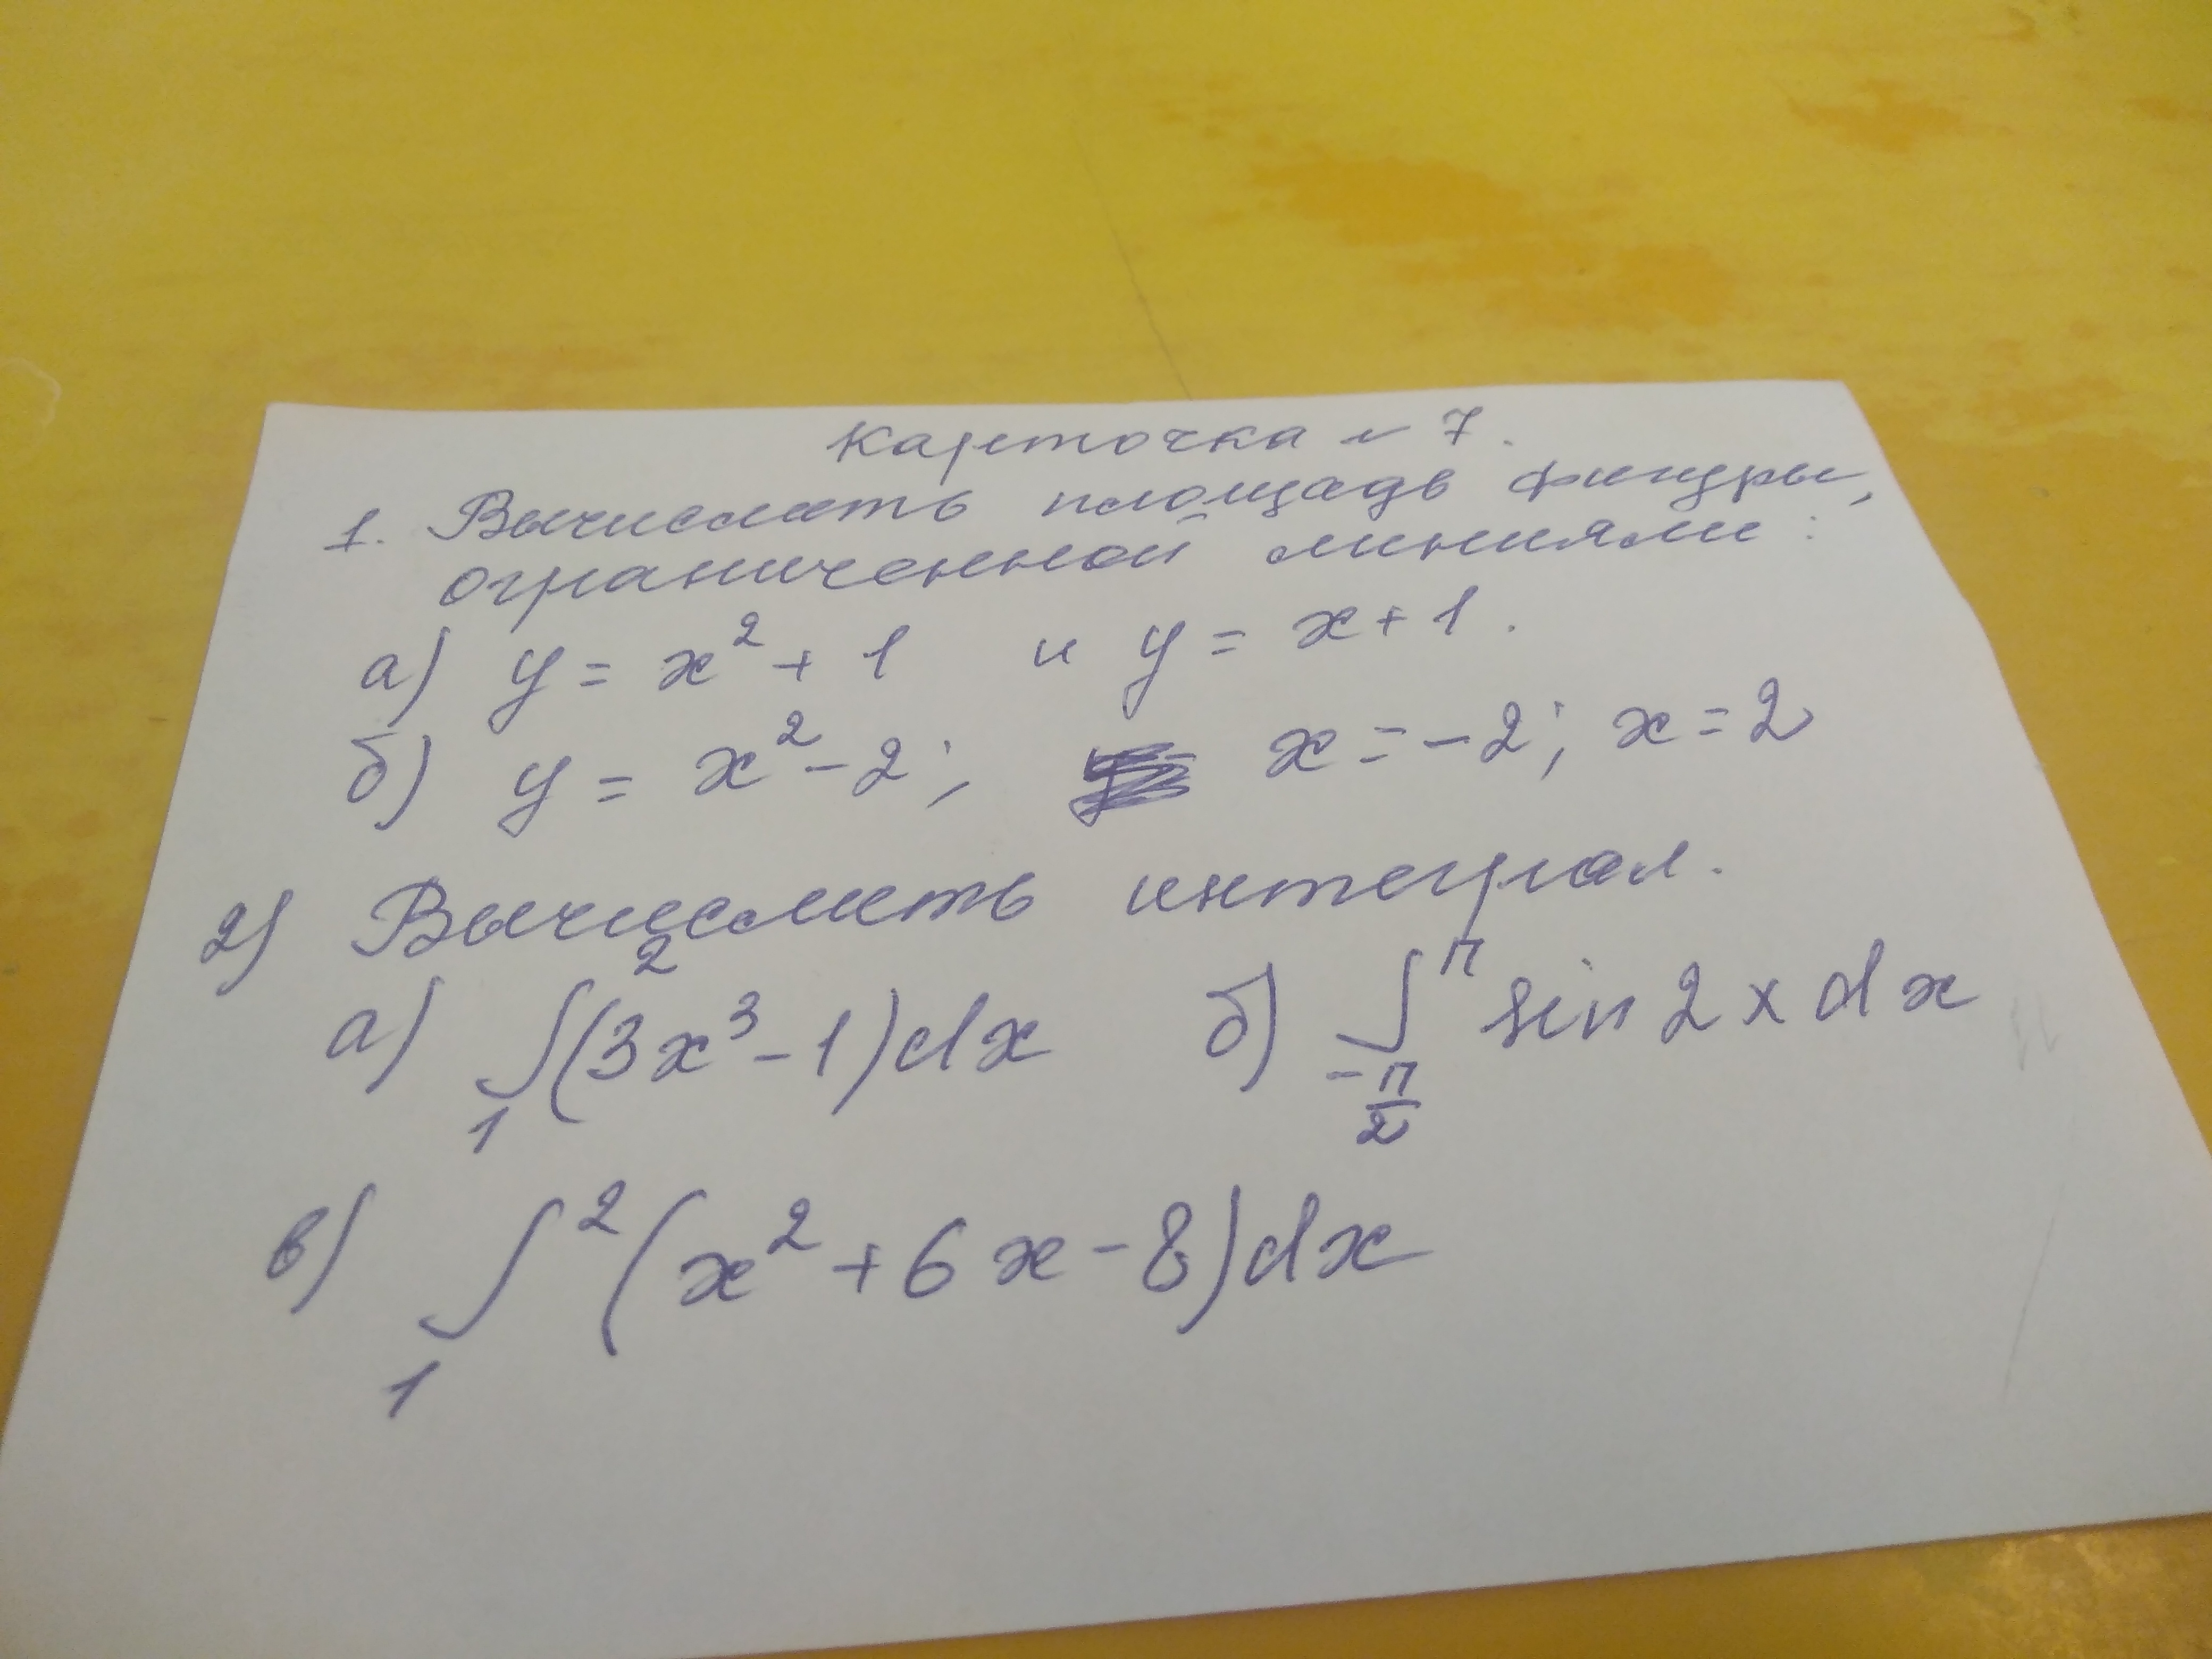 Карточка № 7.
1. Вычислить площадь фигуры,
ограниченной линиями:
а) y = x² + 1 и y = x + 1.
б) y = x² - 2; x = -2; x = 2
2) Вычислить интеграл.
а) ∫₁² (3x³ - 1)dx б) ∫_{-π/2}^{π} sin 2x dx
в) ∫₁² (x² + 6x - 8)dx